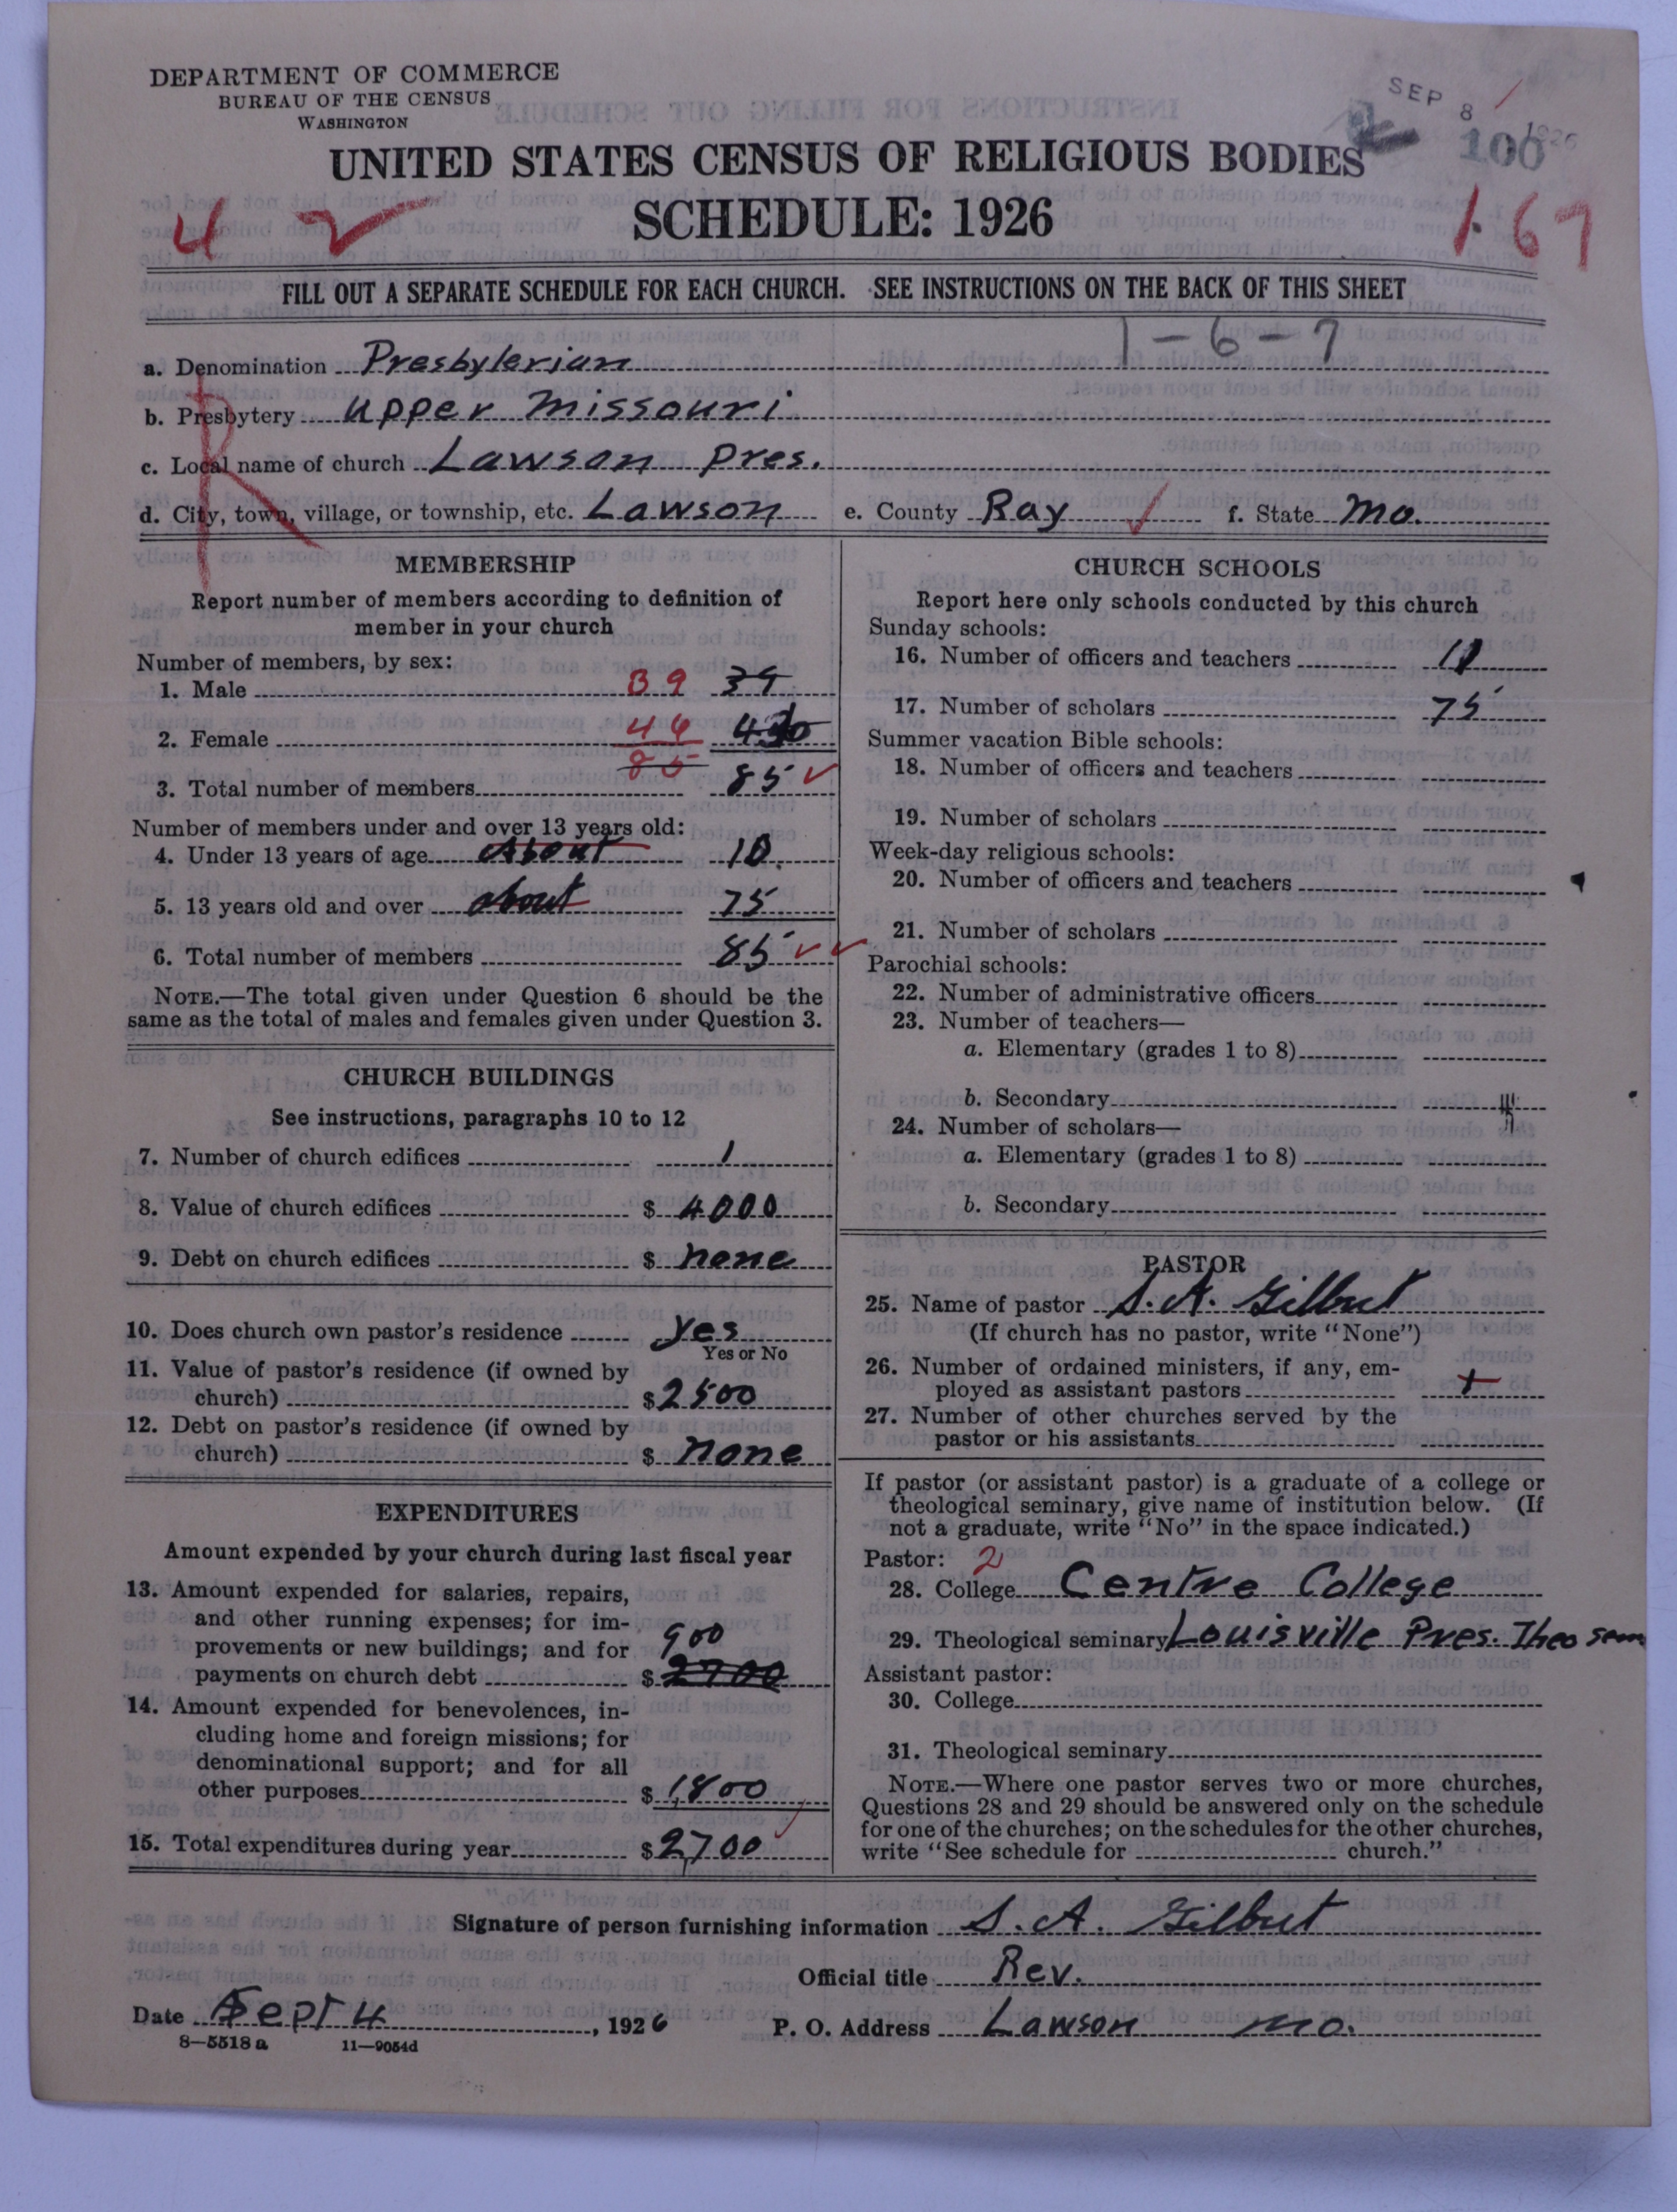 DEPARTMENT OF COMMERCE
BUREAU OF THE CENSUS
WASHINGTON
SEP 8 1926
100
UNITED STATES CENSUS OF RELIGIOUS BODIES
SCHEDULE: 1926
4
1.67
FILL OUT A SEPARATE SCHEDULE FOR EACH CHURCH. SEE INSTRUCTIONS ON THE BACK OF THIS SHEET
1-6-7
a. Denomination Presbyterian
b. Presbytery Upper Missouri
c. Local name of church Lawson Pres.
d. City, town, village, or township, etc. Lawson e. County Ray f. State Mo.
R
MEMBERSHIP
Report number of members according to definition of
member in your church
Number of members, by sex:
1. Male 39 39
2. Female 46
85
3. Total number of members 85
Number of members under and over 13 years old:
4. Under 13 years of age About 10.
5. 13 years old and over about 75
6. Total number of members 85
NOTE.—The total given under Question 6 should be the
same as the total of males and females given under Question 3.
CHURCH BUILDINGS
See instructions, paragraphs 10 to 12
7. Number of church edifices 1
8. Value of church edifices $ 4000
9. Debt on church edifices $ none
10. Does church own pastor's residence yes
Yes or No
11. Value of pastor's residence (if owned by
church) $ 2500
12. Debt on pastor's residence (if owned by
church) $ none
EXPENDITURES
Amount expended by your church during last fiscal year
13. Amount expended for salaries, repairs,
and other running expenses; for im-
provements or new buildings; and for 900
payments on church debt $ 2700
14. Amount expended for benevolences, in-
cluding home and foreign missions; for
denominational support; and for all
other purposes $ 1,800
15. Total expenditures during year $ 2,700
CHURCH SCHOOLS
Report here only schools conducted by this church
Sunday schools:
16. Number of officers and teachers
17. Number of scholars 75
Summer vacation Bible schools:
18. Number of officers and teachers
19. Number of scholars
Week-day religious schools:
20. Number of officers and teachers
21. Number of scholars
Parochial schools:
22. Number of administrative officers
23. Number of teachers—
a. Elementary (grades 1 to 8)
b. Secondary
24. Number of scholars—
a. Elementary (grades 1 to 8)
b. Secondary
PASTOR
25. Name of pastor S. A. Gilbert
(If church has no pastor, write "None")
26. Number of ordained ministers, if any, em-
ployed as assistant pastors
27. Number of other churches served by the
pastor or his assistants
If pastor (or assistant pastor) is a graduate of a college or
theological seminary, give name of institution below. (If
not a graduate, write "No" in the space indicated.)
Pastor: 2
28. College Centre College
29. Theological seminary Louisville Pres. Theo sem
Assistant pastor:
30. College
31. Theological seminary
NOTE.—Where one pastor serves two or more churches,
Questions 28 and 29 should be answered only on the schedule
for one of the churches; on the schedules for the other churches,
write "See schedule for church."
Signature of person furnishing information S. A. Gilbert
Official title Rev.
Date Sept 4, 1926 P. O. Address Lawson Mo.
8—5518 a 11—9054d